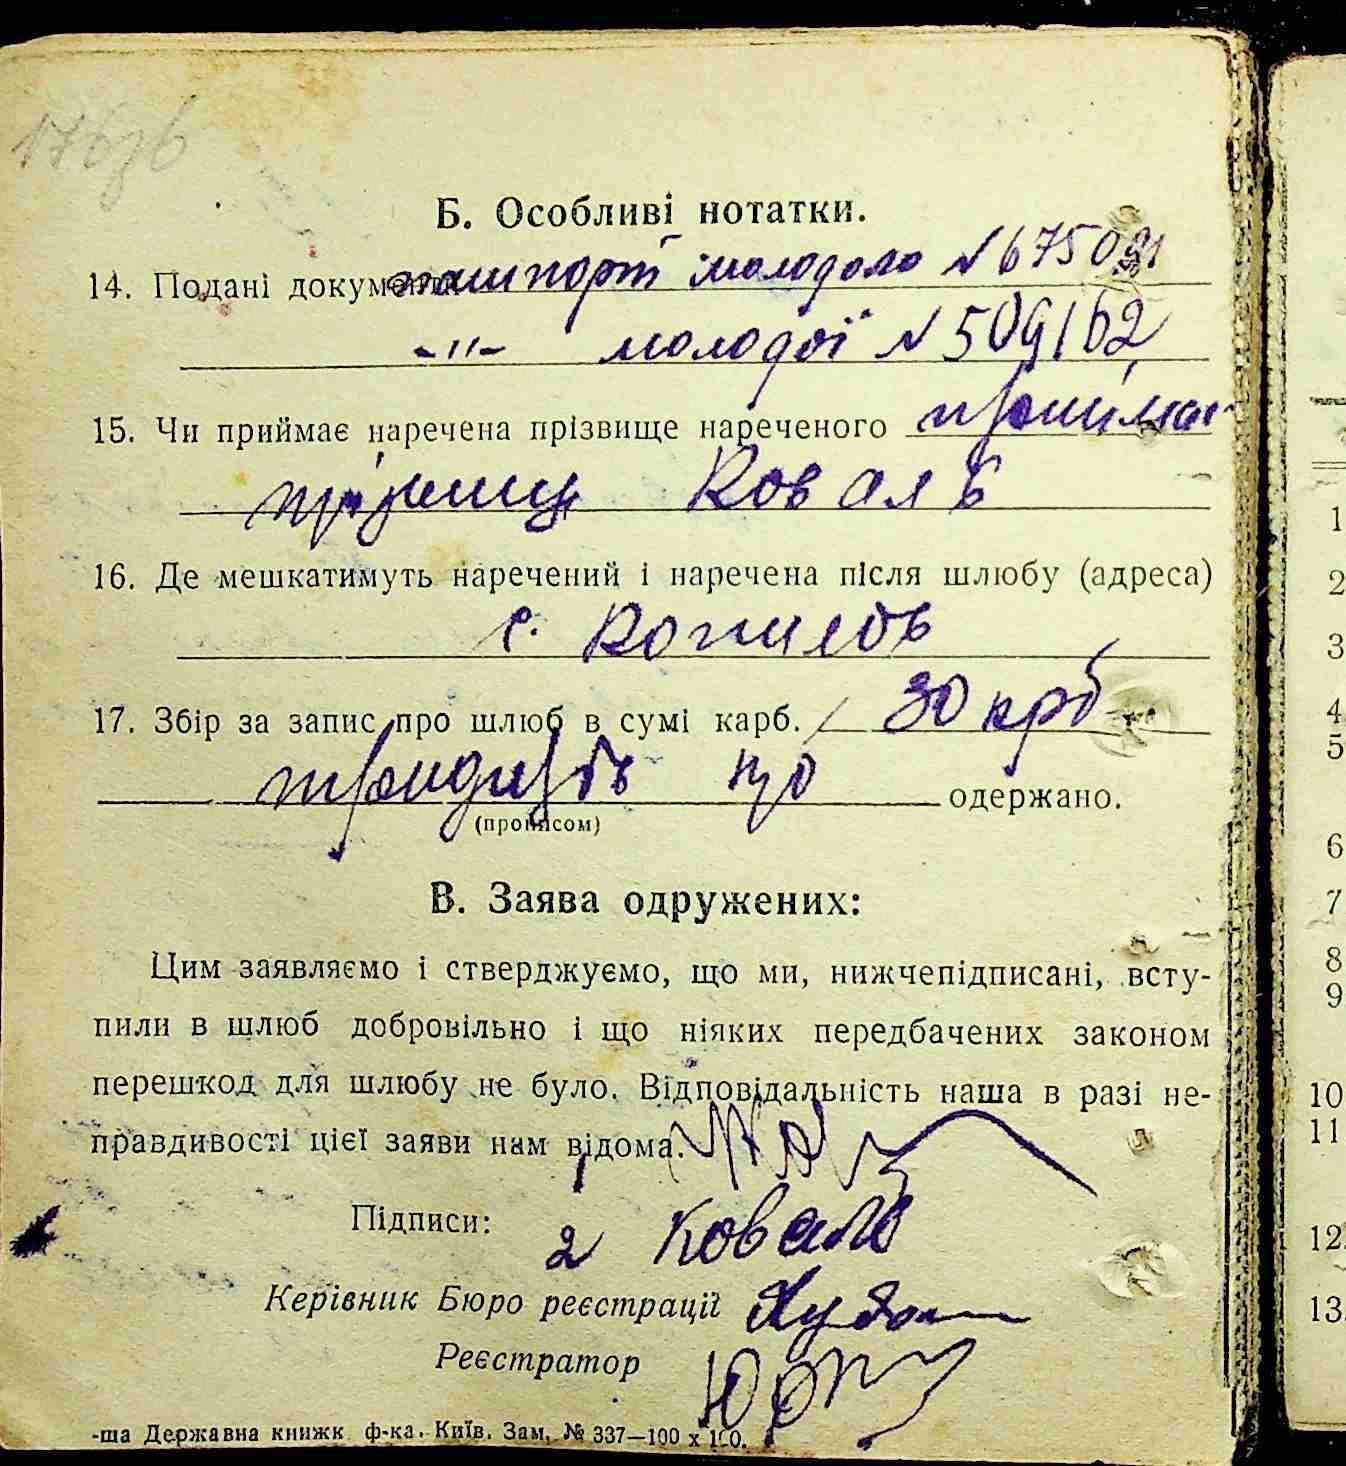 Б. Особливі нотатки.
14. Подані документи пашпорт молодого № 675091
-"- молодої № 509162
15. Чи приймає наречена прізвище нареченого приймає
прізвище Коваль
16. Де мешкатимуть наречений і наречена після шлюбу (адреса)
с.
17. Збір за запис про шлюб в сумі карб. 30 крб
тридцять що одержано.
(прописом)
В. Заява одружених:
Цим заявляємо і стверджуємо, що ми, нижчепідписані, всту-
пили в шлюб добровільно і що ніяких передбачених законом
перешкод для шлюбу не було. Відповідальність наша в разі не-
правдивості цієї заяви нам відома.
1
Підписи:
2 Коваль
Керівник Бюро реєстрації
Реєстратор
-ша Державна книжк ф-ка. Київ. Зам. № 337—100 х
1
2
3
4
5
6
7
8
9
10
11
12.
13.